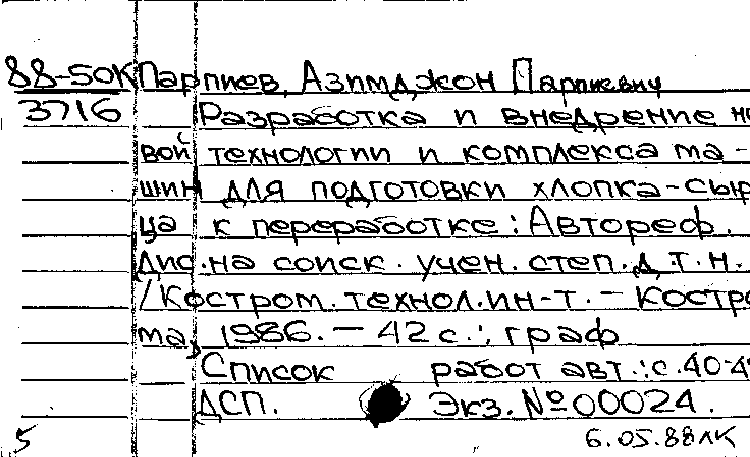 88-50К Парпиев, Азимджон Парпиевич
3716 Разработка и внедрение но
вой технологии и комплекса ма-
шин для подготовки хлопка-сыр
ца к переработке: Автореф.
Дис. на соиск. учен. степ. д.т.н.
/Костром. технол. ин-т. - Костро
ма, 1986. - 42 с.: граф
Список работ авт.: с. 40-4
ДСП. Экз. № 00024.
5 6.05.88 ЛК